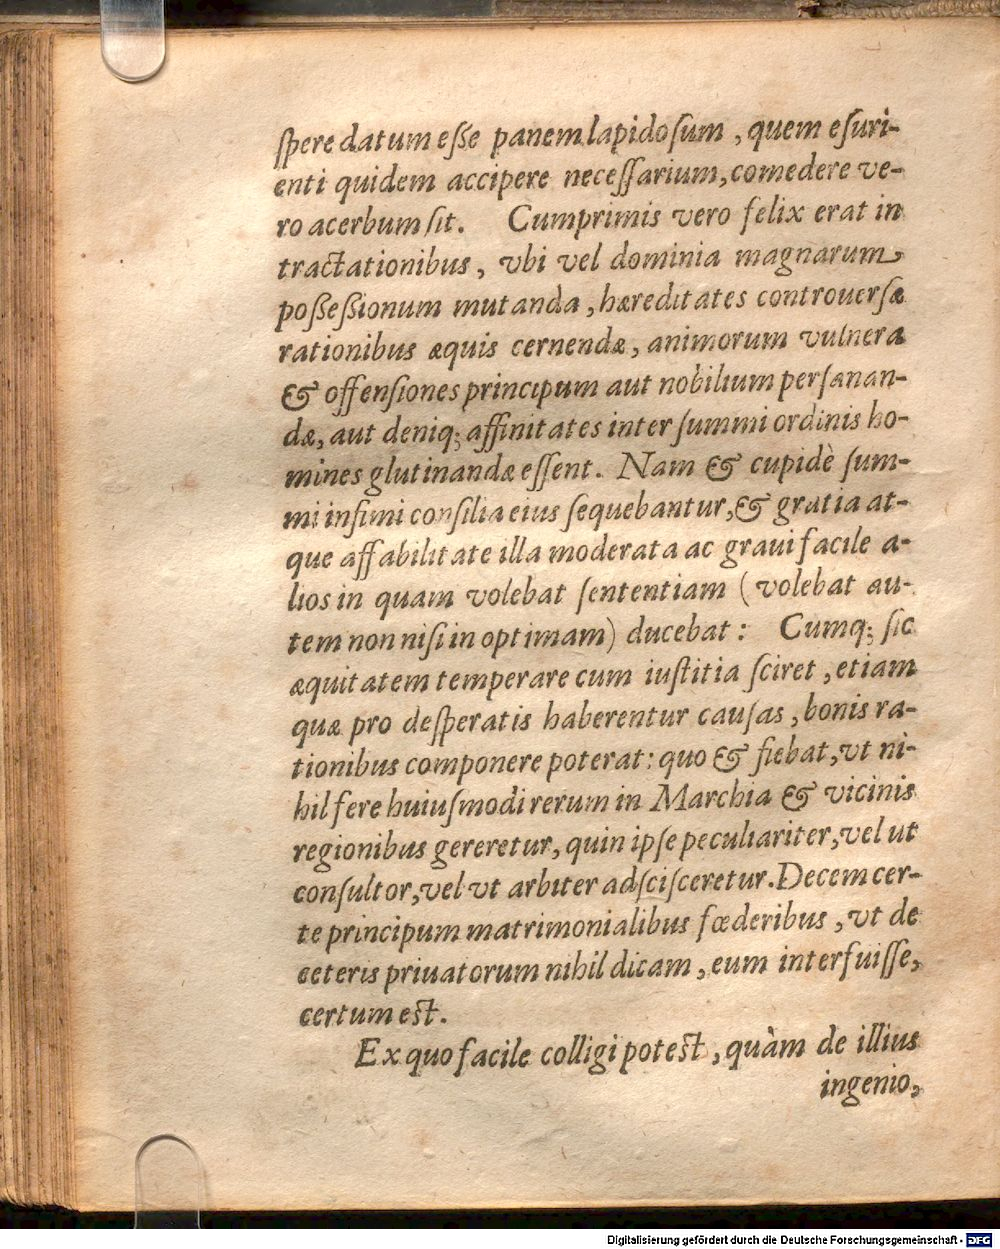 ſpere datum eſſe panem lapidoſum, quem eſuri-
enti quidem accipere neceſſarium, comedere ve-
ro acerbum ſit. Cumprimis vero felix erat in
tractationibus, vbi vel dominia magnarum
poſſeſſionum mutanda, hæreditates controuerſæ
rationibus æquis cernendæ, animorum vulnera
& offenſiones principum aut nobilium perſanan-
dæ, aut deniq; affinitates inter ſummi ordinis ho-
mines glutinandæ eſſent. Nam & cupidè ſum-
mi infimi conſilia eius ſequebantur, & gratia at-
que affabilitate illa moderata ac graui facile a-
lios in quam volebat ſententiam (volebat au-
tem non niſi in optimam) ducebat: Cumq; ſic
æquitatem temperare cum iuſtitia ſciret, etiam
quæ pro deſperatis haberentur cauſas, bonis ra-
tionibus componere poterat: quo & fiebat, vt ni-
hil fere huiuſmodi rerum in Marchia & vicinis
regionibus gereretur, quin ipſe peculiariter, vel ut
conſultor, vel vt arbiter adſciſceretur. Decem cer-
te principum matrimonialibus fœderibus, vt de
ceteris priuatorum nihil dicam, eum interfuiſſe,
certum eſt.
Ex quo facile colligi poteſt, quàm de illius
ingenio,
Digitalisierung gefördert durch die Deutsche Forschungsgemeinschaft - DFG